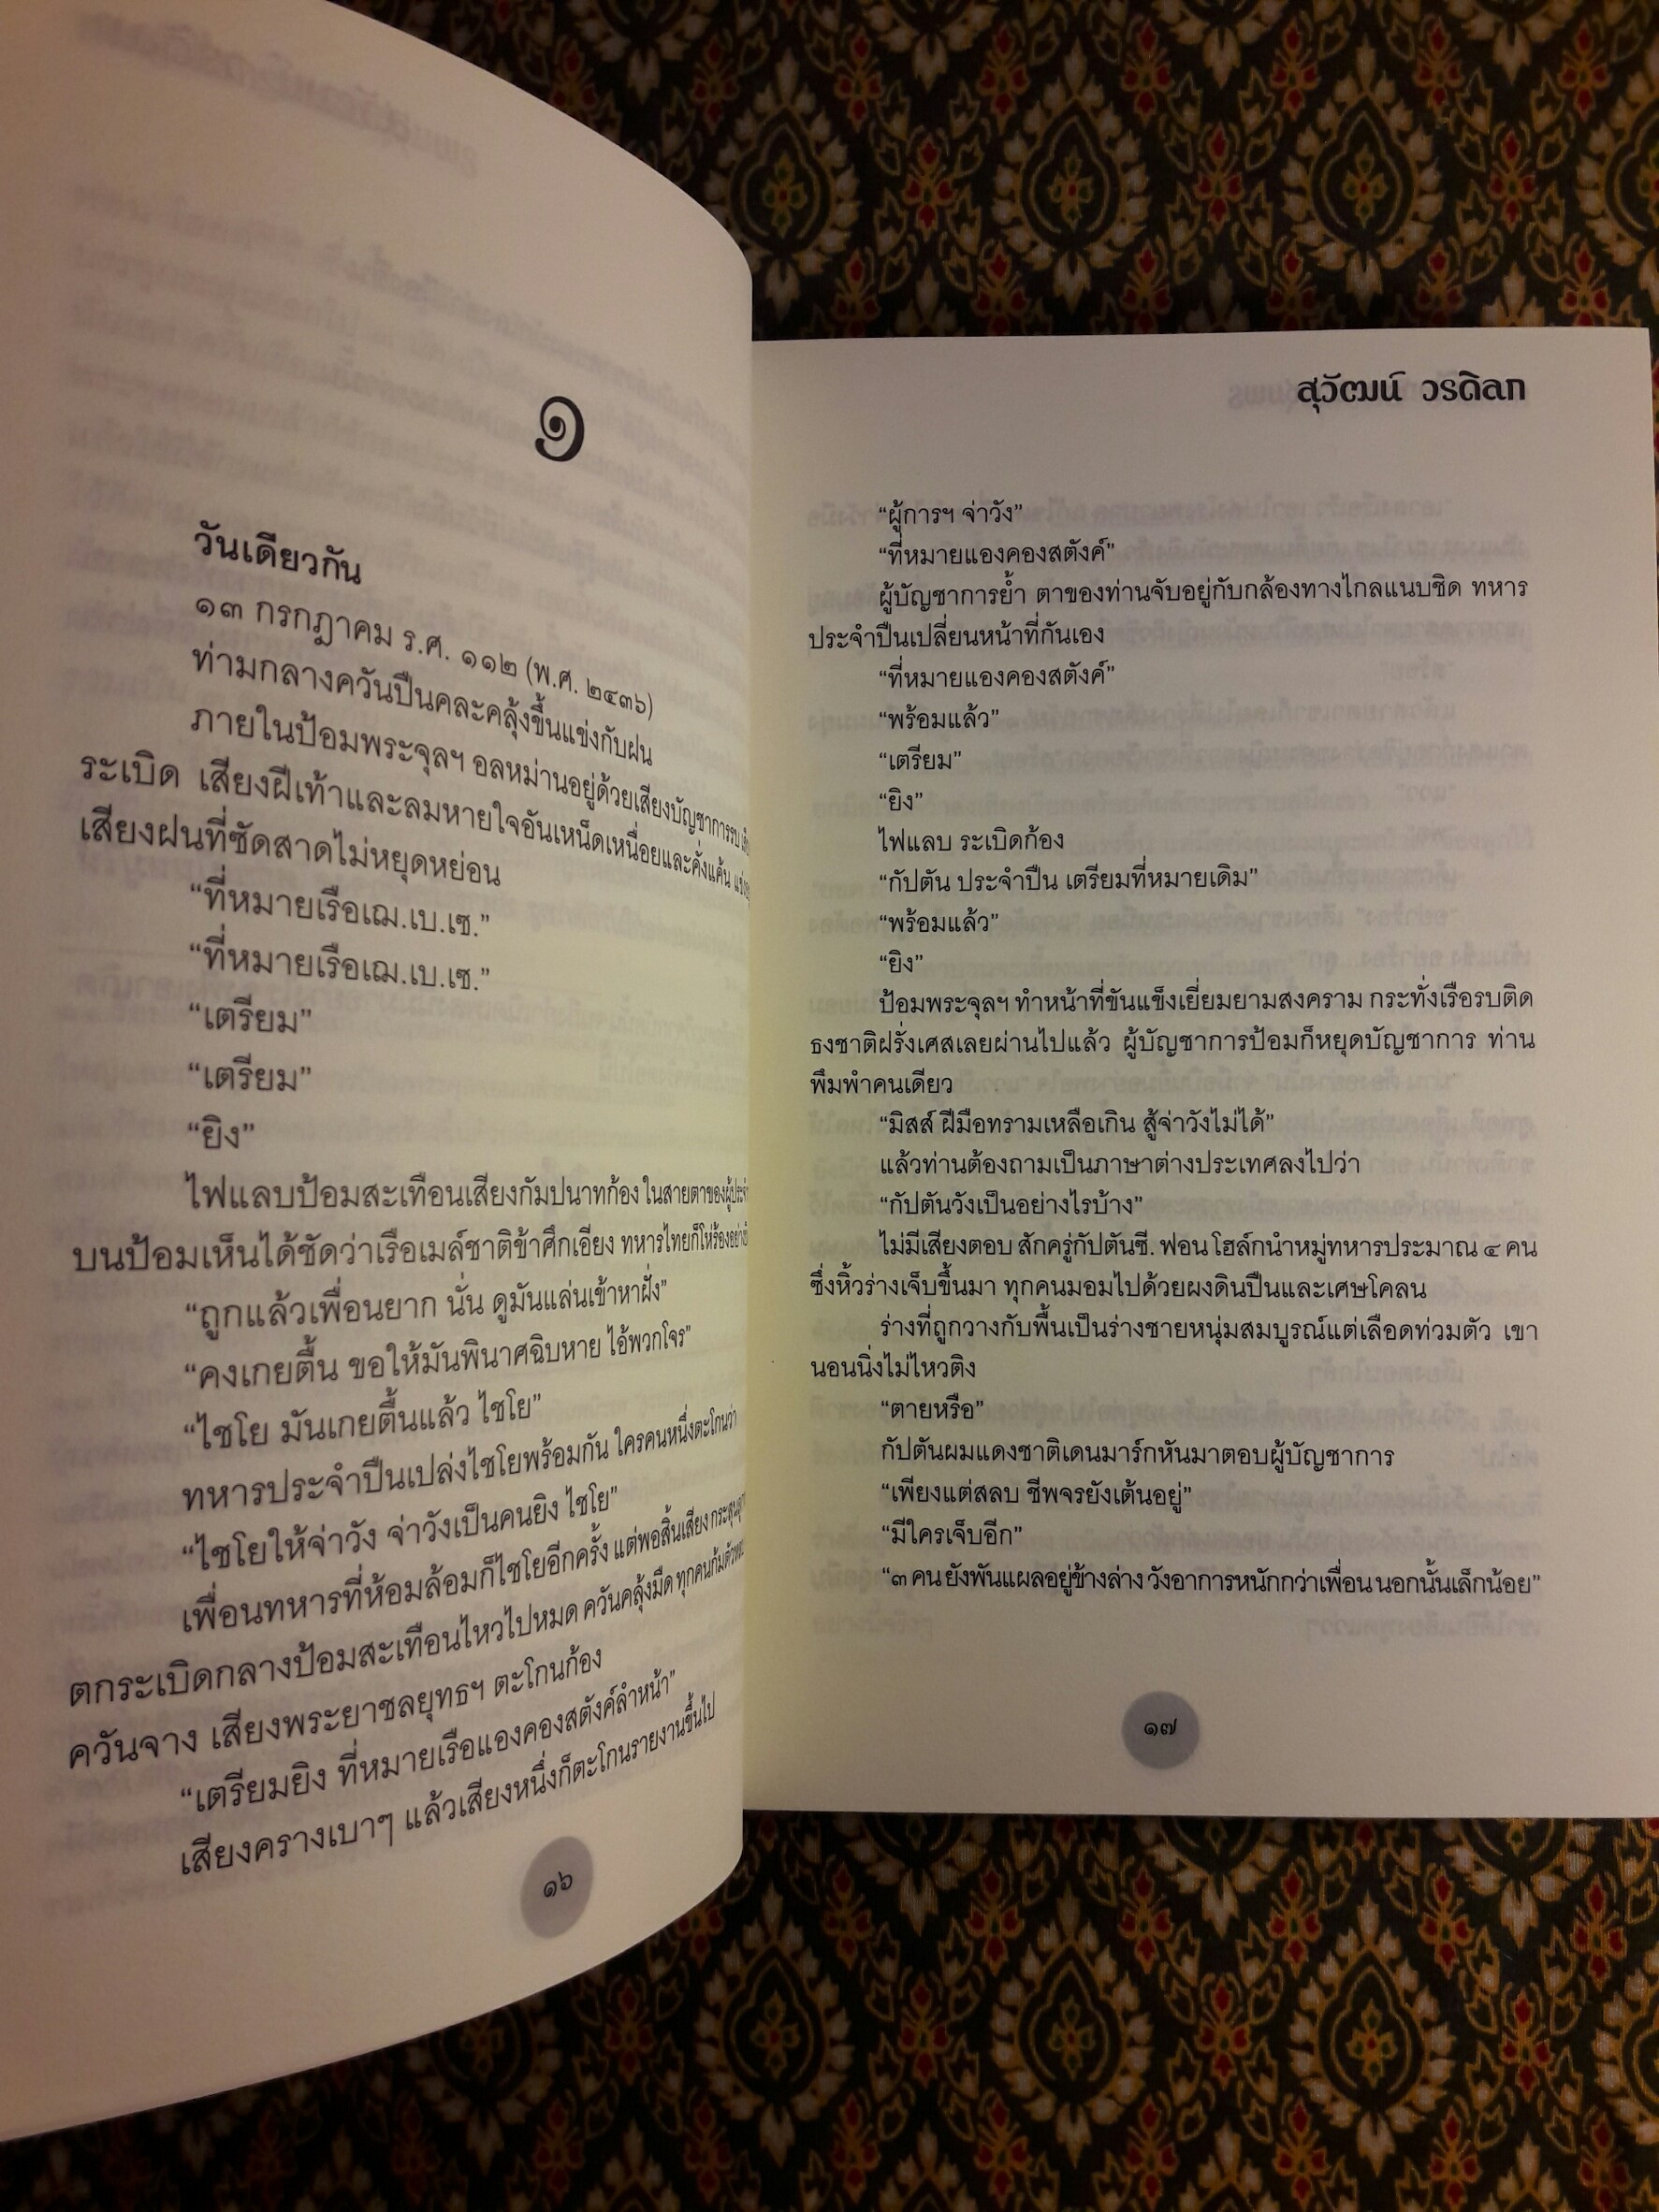 ๑
วันเดียวกัน
๑๓ กรกฎาคม ร.ศ. ๑๑๒ (พ.ศ. ๒๔๓๖)
ท่ามกลางควันปืนคละคลุ้งขึ้นแข่งกับฝน
ภายในป้อมพระจุลฯ อลหม่านอยู่ด้วยเสียงบัญชาการรบ
ระเบิด เสียงฝีเท้าและลมหายใจอันเหน็ดเหนื่อยและคั่งแค้น
เสียงฝนที่ซัดสาดไม่หยุดหย่อน
“ที่หมายเรือเฌ.เบ.เซ.”
“ที่หมายเรือเฌ.เบ.เซ.”
“เตรียม”
“เตรียม”
“ยิง”
ไฟแลบป้อมสะเทือนเสียงกัมปนาทก้อง ในสายตาของ
บนป้อมเห็นได้ชัดว่าเรือเมล์ชาติข้าศึกเอียง ทหารไทยก็โห่ร้อง
“ถูกแล้วเพื่อนยาก นั่น ดูมันแล่นเข้าหาฝั่ง”
“คงเกยตื้น ขอให้มันพินาศฉิบหาย ไอ้พวกโจร”
“ไชโย มันเกยตื้นแล้ว ไชโย”
ทหารประจำปืนเปล่งไชโยพร้อมกัน ใครคนหนึ่งตะโกนว่า
“ไชโยให้จ่าวัง จ่าวังเป็นคนยิง ไชโย”
เพื่อนทหารที่ห้อมล้อมก็ไชโยอีกครั้ง แต่พอสิ้นเสียง
ตกระเบิดกลางป้อมสะเทือนไหวไปหมด ควันคลุ้งมืด ทุกคนก้มตัว
ควันจาง เสียงพระยาชลยุทธฯ ตะโกนก้อง
“เตรียมยิง ที่หมายเรือแองคองสตังค์ลำหน้า”
เสียงครางเบาๆ แล้วเสียงหนึ่งก็ตะโกนรายงานขึ้นไป
๑๖
สุวัฒน์ วรดิลก
“ผู้การฯ จ่าวัง”
“ที่หมายแองคองสตังค์”
ผู้บัญชาการย้ำ ตาของท่านจับอยู่กับกล้องทางไกลแนบชิด ทหาร
ประจำปืนเปลี่ยนหน้าที่กันเอง
“ที่หมายแองคองสตังค์”
“พร้อมแล้ว”
“เตรียม”
“ยิง”
ไฟแลบ ระเบิดก้อง
“กัปตัน ประจำปืน เตรียมที่หมายเดิม”
“พร้อมแล้ว”
“ยิง”
ป้อมพระจุลฯ ทำหน้าที่ขันแข็งเยี่ยมยามสงคราม กระทั่งเรือรบติด
ธงชาติฝรั่งเศสเลยผ่านไปแล้ว ผู้บัญชาการป้อมก็หยุดบัญชาการ ท่าน
พึมพำคนเดียว
“มิสส์ ฝีมือทรามเหลือเกิน สู้จ่าวังไม่ได้”
แล้วท่านต้องถามเป็นภาษาต่างประเทศลงไปว่า
“กัปตันวังเป็นอย่างไรบ้าง”
ไม่มีเสียงตอบ สักครู่กัปตันซี. ฟอน โฮล์กนำหมู่ทหารประมาณ ๔ คน
ซึ่งหิ้วร่างเจ็บขึ้นมา ทุกคนมอมไปด้วยผงดินปืนและเศษโคลน
ร่างที่ถูกวางกับพื้นเป็นร่างชายหนุ่มสมบูรณ์แต่เลือดท่วมตัว เขา
นอนนิ่งไม่ไหวติง
“ตายหรือ”
กัปตันผมแดงชาติเดนมาร์กหันมาตอบผู้บัญชาการ
“เพียงแต่สลบ ชีพจรยังเต้นอยู่”
“มีใครเจ็บอีก”
“๓ คน ยังพันแผลอยู่ข้างล่าง วังอาการหนักกว่าเพื่อน นอกนั้นเล็กน้อย”
๑๗